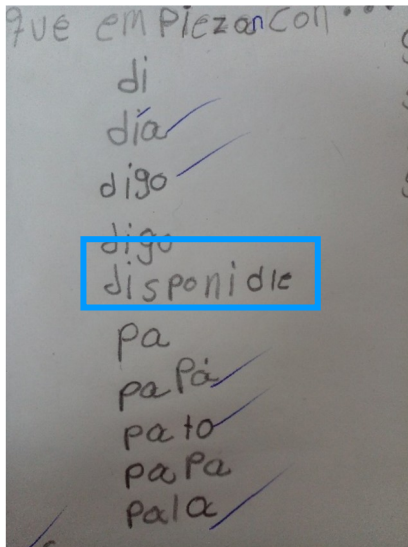 que empiezan con...
di
día
digo
digo
disponidle
pa
papá
pato
papa
pala